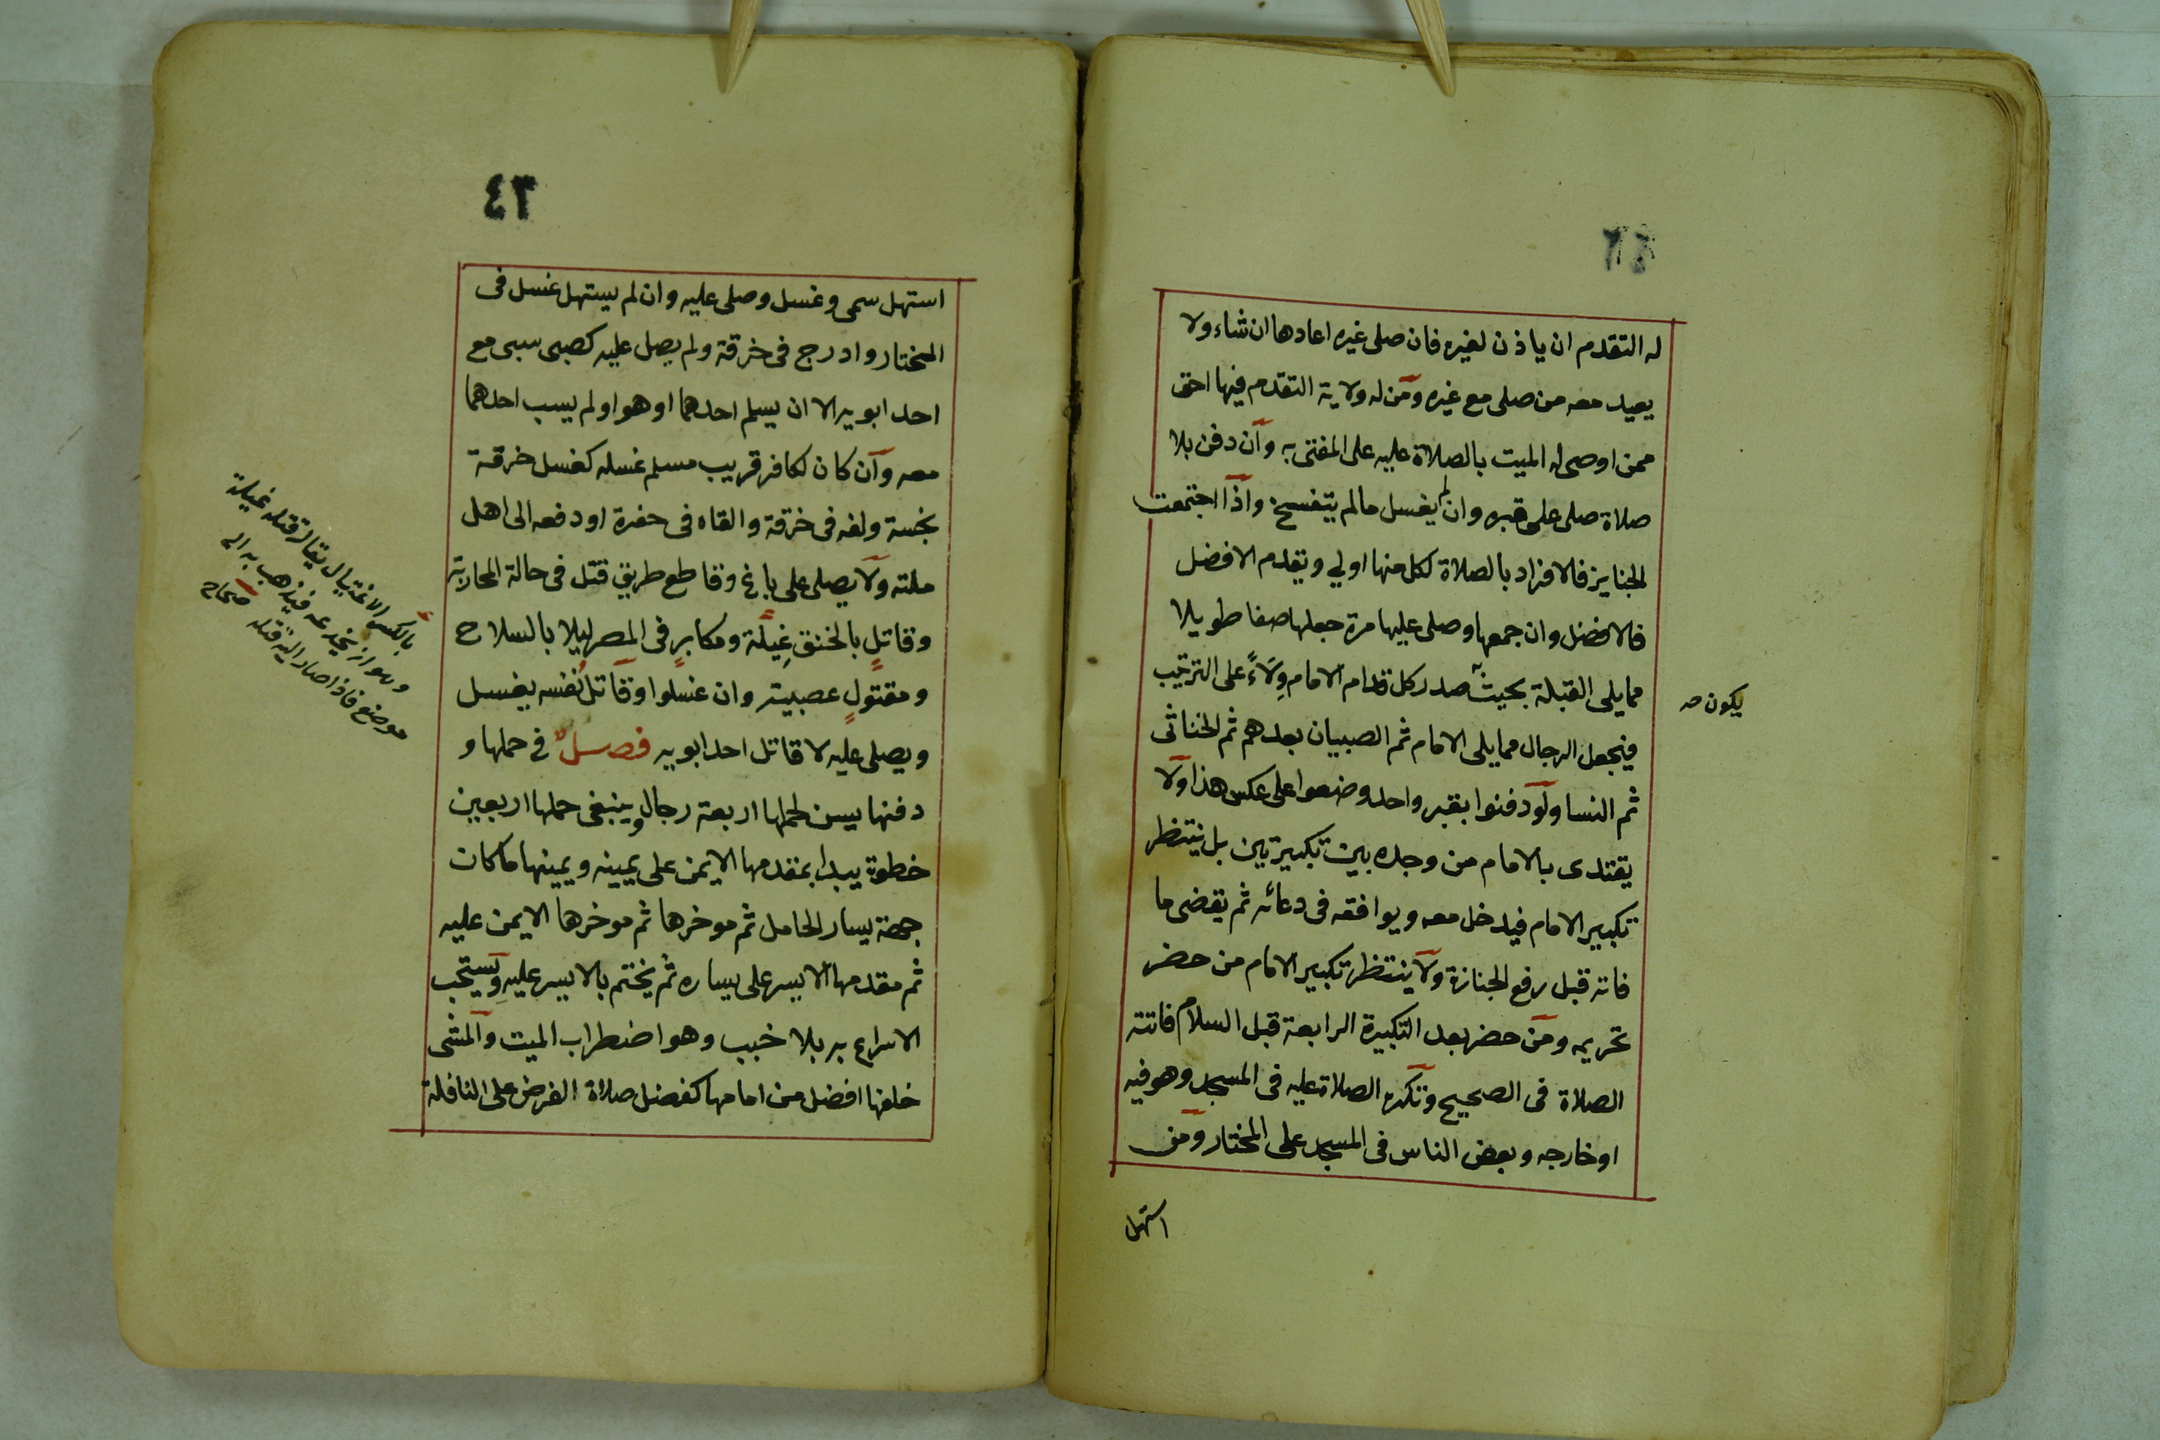 له التقدم ان ياذن لغيره فان صلى غيره اعادها ان شاء ولا
يعيد معه من صلى مع غيره ومن له ولاية التقدم فيها احق
ممن اوصى له الميت بالصلاة عليه على المفتى به وان دفن بلا
صلاة صلى على قبره وان لم يغسل مالم يتفسخ واذا اجتمعت
الجنايز فالافراد بالصلاة لكل منها اولي ويقدم الافضل
فالافضل وان جمعها وصلى عليها مرة جعلها صفا طويلا
مما يلى القبلة بحيث صدر كل قدام الامام ولاءً على الترتيب
يكون صـ
فيجعل الرجال مما يلى الامام ثم الصبيان بعدهم ثم الخناثى
ثم النسا ولو دفنوا بقبر واحد وضعوا على عكس هذا ولا
يقتدى بالامام من وجده بين تكبيرتين بل ينتظر
تكبير الامام فيدخل معه ويوافقه فى دعائه ثم يقضى ما
فاته قبل رفع الجنازة ولا ينتظر تكبير الامام من حضر
تحريمه ومن حضر بعد التكبيرة الرابعة قبل السلام فاتته
الصلاة فى الصحيح وتكره الصلاة عليه فى المسجد وهو فيه
او خارجه وبعض الناس فى المسجد على المختار ومن
استهل
٣٤
استهل سمى وغسل وصلى عليه وان لم يستهل غسل فى
المختار وادرج فى خرقة ولم يصل عليه كصبى سبى مع
احد ابويه الا ان يسلم احدهما او هو او لم يسب احدهما
معه وان كان لكافر قريب مسلم غسله كغسل خرقة
نجسة ولفه فى خرقة والقاه فى حفرة او دفعه الى اهل
ملته ولا يصلى على باغ وقاطع طريق قتل فى حالة المحاربة
وقاتلٍ بالخنق غِيلة ومكابرٍ فى المصر ليلا بالسلاح
ومقتولٍ عصبية وان غسلوا وقاتل نفسه يغسل
ويصلى عليه لا قاتل احد ابويه فصل في حملها و
دفنها يسن لحملها اربعة رجال وينبغى حملها اربعين
خطوة يبدا بمقدمها الايمن على يمينه ويمينها ماكان
جهة يسار الحامل ثم موخرها ثم موخرها الايمن عليه
ثم مقدمها الايسر على يساره ثم يختم بالايسر عليه ويستحب
الاسراع به بلا خبب وهو اضطراب الميت والمشى
خلفها افضل من امامها كفضل صلاة الفرض على النافلة
بالكسر الاغتيال يقال قتله غيلة
وهو ان يخدعه فيذهب به الى
موضع فاذا صار اليه قتله صحاح